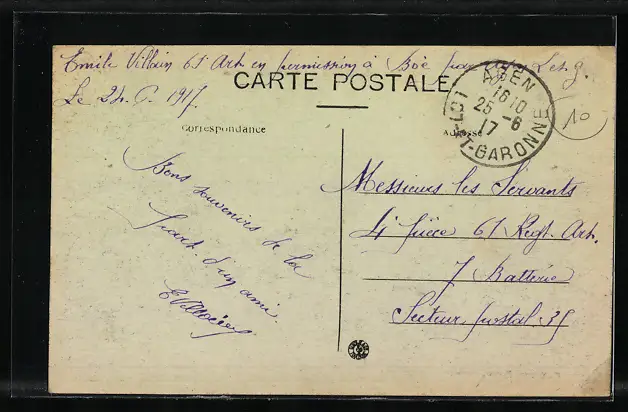 Emile Villain 61 Art en permission à Boé par
CARTE POSTALE
Le 24. 6. 1917
AGEN
16 10
25 -6
17
LOT-ET-GARONNE
10
Correspondance
Adresse
Bons souvenirs de la
part d'un ami
EVillain
Messieurs les Servants
4e pièce 61 Regt. Art.
7 Batterie
Secteur postal 35